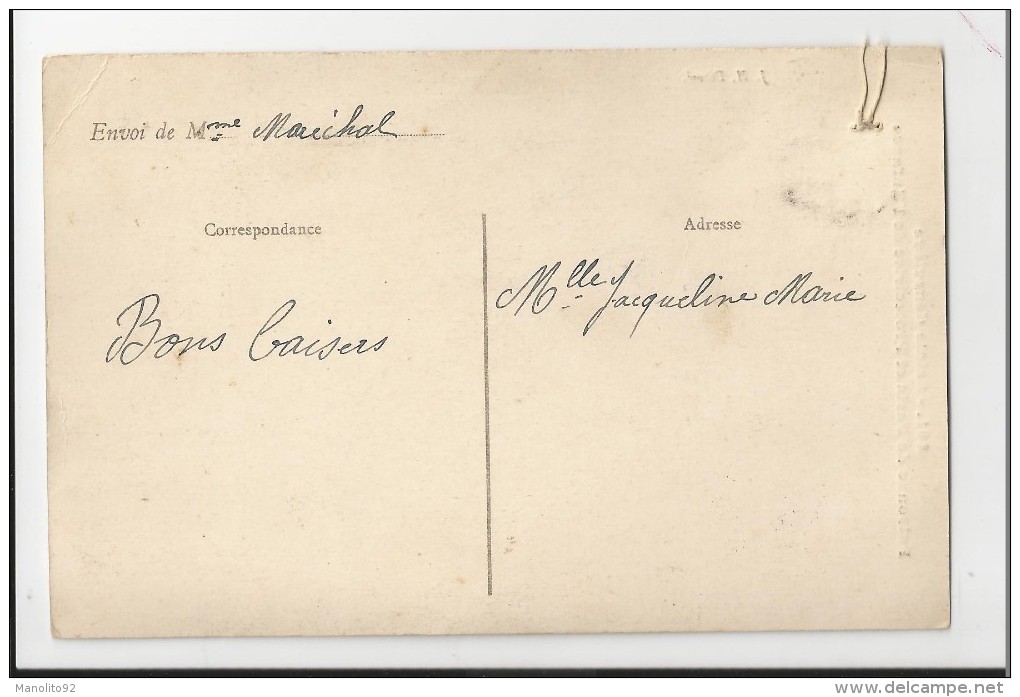 Envoi de Mme Maréchal
Correspondance
Adresse
Mlle Jacqueline Marie
Bons baisers
Manolito92
www.delcampe.net